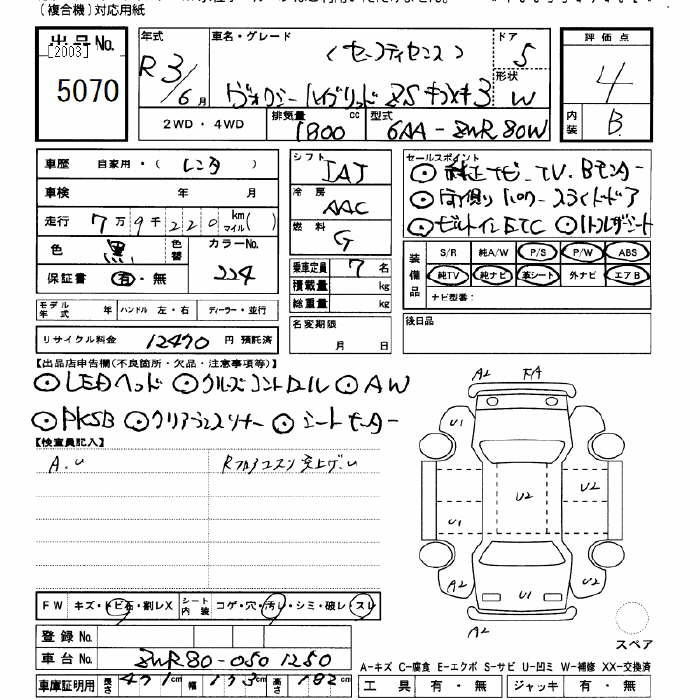 (複合機)対応用紙
出品No.
[2003]
5070
年式
R3/6月
車名・グレード
(セーフティセンス)
ヴォクシーハイブリッド ZS 煌 3
ドア
5
形状
W
評価点
4
内装
B
2WD・4WD
排気量
1800 cc
型式
6AA-ZWR80W
車歴 自家用・(レンタ)
車検 年 月
走行 7万9千220 km マイル( )
色 黒 色替 カラーNo.
保証書 有・無 224
モデル年式 年 ハンドル 左・右 ディーラー・並行
リサイクル料金 12470円 預託済
シフト
IAT
冷房
AAC
燃料
G
乗車定員 7名
積載量 kg
総重量 kg
名変期限
月 日
セールスポイント
純正ナビ TV.Bモニター
両側パワースライドドア
ビルトインETC ハーフレザーシート
装備品
S/R 純A/W P/S P/W ABS
純TV 純ナビ 革シート 外ナビ エアB
ナビ型番:
後日品
【出品店申告欄(不良箇所・欠品・注意事項等)】
LEDヘッド クルーズコントロール AW
PKSB クリアランスソナー シートモーター
【検査員記入】
A.U
FW キズ・トビ石・割レX シート内装 コゲ・穴・汚レ・シミ・破レ・スレ
登録No.
車台No. ZWR80-0501250
車庫証明用 長さ 471cm 幅 173cm 高さ 182cm
A2
U1
A2
U2
U2
U1
A2
U2
U1
A2
スペア
A-キズ C-腐食 E-エクボ S-サビ U-凹ミ W-補修 XX-交換済
工具 有・無 ジャッキ 有・無